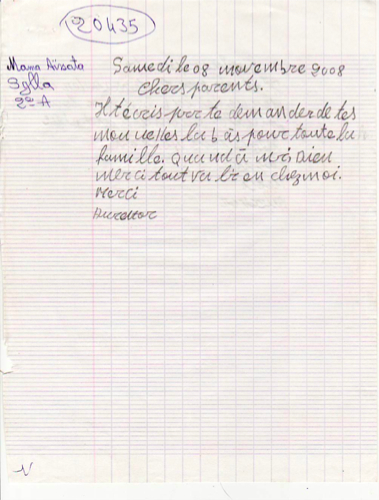 20435
Mama Aïssata
Sylla
2e A
Samedi le 08 novembre 2008
Chers parents.
Je t'écris pour te demander de tes
nouvelles la bàs pour toute la
famille. quand à moi Dieu
merci tout va bien chez moi.
Merci
Aurevoir